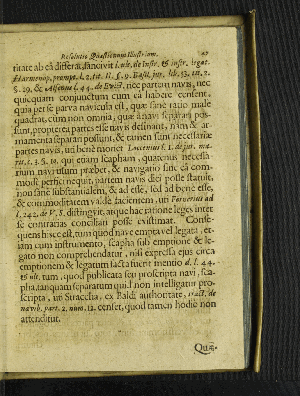 Resolutio Quæstionum Illustrium. 27
titate ab eâ differat, sancivit l. ult. de Instr. & instr. legat.
Harmenop. prompt. l. 2. tit. II. §. 9. Basil. jur. lib. 53. tit. 2.
§. 29. & Alfenus l. 44. de Evict. nec partem navis, nec
quicquam conjunctum cum eâ habere censent,
quia per se parva navicula est, quæ sine ratio male
quadrat, cum non omnia, quæ à navi separari pos-
sunt, propterea partes esse navis desinant, nam & ar-
mamenta separari possunt, & tamen sunt necessariæ
partes navis, uti benè monet Loccenius l. 1. de jur. ma-
rit. c. 3. §. 10. qui etiam scapham, quatenus necessa-
rium navi usum præbet, & navigatio sine eâ com-
mode perfici nequit, partem navis dici posse statuit,
non sanè substantialem, & ad esse, sed ad bene esse,
& commoditatem valdè facientem, uti Fornerius ad
l. 242. de V. S. distinguit, atque hac ratione leges inter
se contrarias conciliari posse existimat. Conse-
quens hinc est, tum quod nave emptâ vel legata, et-
iam cum instrumento, scapha sub emptione & le-
gato non comprehendatur, nisi expressa ejus circa
emptionem & legatum facta fuerit mentio d. l. 44.
& ult. tum, quod publicata seu proscripta navi, sca-
pha, tanquam separatum quid non intelligatur pro-
scripta, uti Straccha, ex Baldi authoritate, tract. de
navib. part. 2. num. 12. censet, quod tamen hodiè non
attenditur.
Quæ-